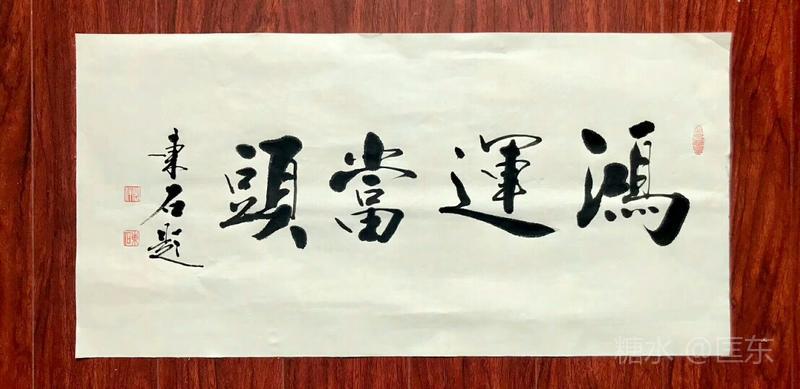 鴻運當頭
東石題
糖水 @匡东